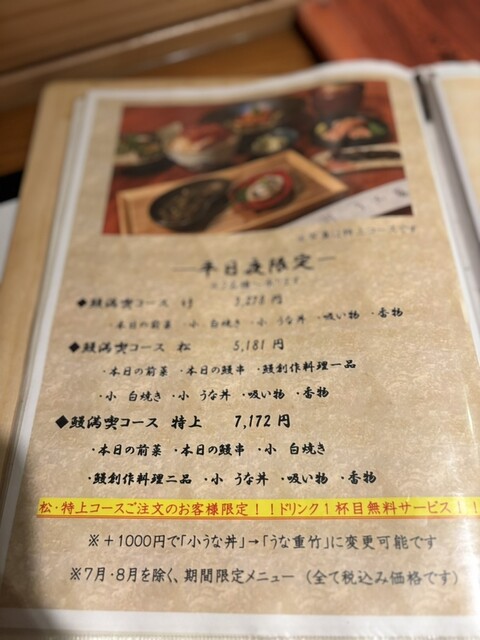 ※写真は特上コースです
―平日夜限定―
◆鰻満喫コース 竹 3,278円
・本日の前菜 ・小 白焼き ・小 うな丼 ・吸い物 ・香物
◆鰻満喫コース 松 5,181円
・本日の前菜 ・本日の鰻串 ・鰻創作料理一品
・小 白焼き ・小 うな丼 ・吸い物 ・香物
◆鰻満喫コース 特上 7,172円
・本日の前菜 ・本日の鰻串 ・小 白焼き
・鰻創作料理二品 ・小 うな丼 ・吸い物 ・香物
松・特上コースご注文のお客様限定!!ドリンク1杯目無料サービス!!
※+1000円で「小うな丼」→「うな重竹」に変更可能です
※7月・8月を除く、期間限定メニュー (全て税込み価格です)